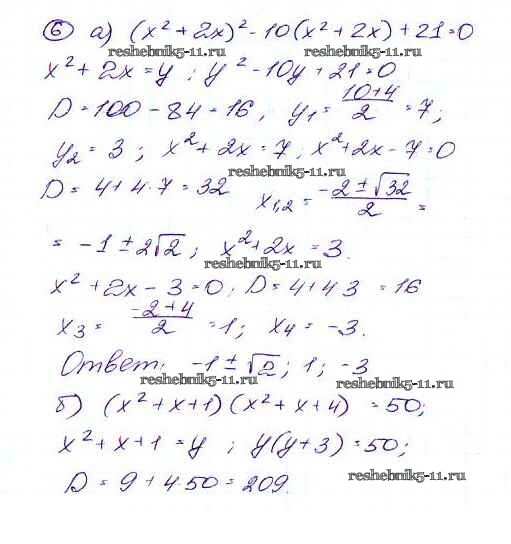 6 а) (x² + 2x)² - 10(x² + 2x) + 21 = 0
reshebnik5-11.ru reshebnik5-11.ru
x² + 2x = y ; y² - 10y + 21 = 0
D = 100 - 84 = 16, y₁ = (10+4)/2 = 7;
reshebnik5-11.ru
y₂ = 3 ; x² + 2x = 7, x² + 2x - 7 = 0
reshebnik5-11.ru
D = 4 + 4·7 = 32 x₁,₂ = (-2 ± √32)/2 =
= -1 ± 2√2 ; x² + 2x = 3.
reshebnik5-11.ru
x² + 2x - 3 = 0; D = 4 + 4·3 = 16
x₃ = (-2+4)/2 = 1; x₄ = -3.
Ответ: -1 ± √2; 1; -3
reshebnik5-11.ru reshebnik5-11.ru
б) (x² + x + 1)(x² + x + 4) = 50;
x² + x + 1 = y ; y(y + 3) = 50;
D = 9 + 4·50 = 209.
reshebnik5-11.ru